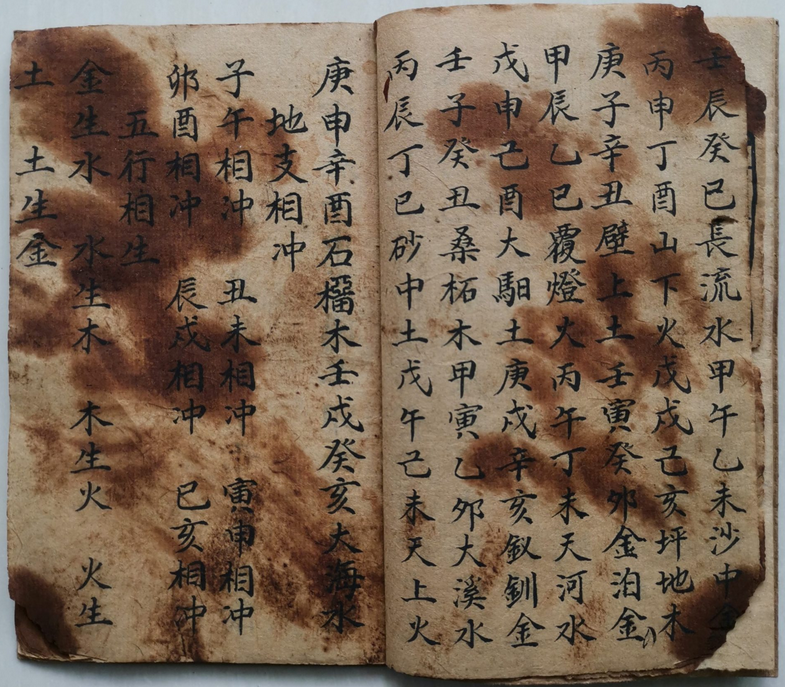 壬辰癸巳長流水甲午乙未沙中金
丙申丁酉山下火戊戌己亥坪地木
庚子辛丑壁上土壬寅癸卯金泊金
甲辰乙巳覆燈火丙午丁未天河水
戊申己酉大馹土庚戌辛亥釵釧金
壬子癸丑桑柘木甲寅乙卯大溪水
丙辰丁巳砂中土戊午己未天上火
庚申辛酉石橊木壬戌癸亥大海水
地支相冲
子午相冲 丑未相冲 寅申相冲
卯酉相冲 辰戌相冲 巳亥相冲
五行相生
金生水 水生木 木生火 火生
土 土生金